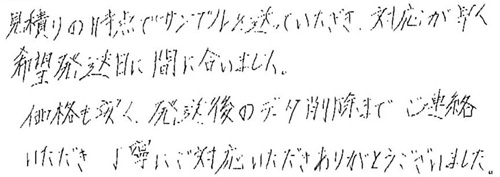 見積りの時点でサンプルを送っていただき、対応が早く
希望発送日に間に合いました。
価格も安く、発送後のデータ削除まで ご連絡
いただき 丁寧にご対応いただきありがとうございました。